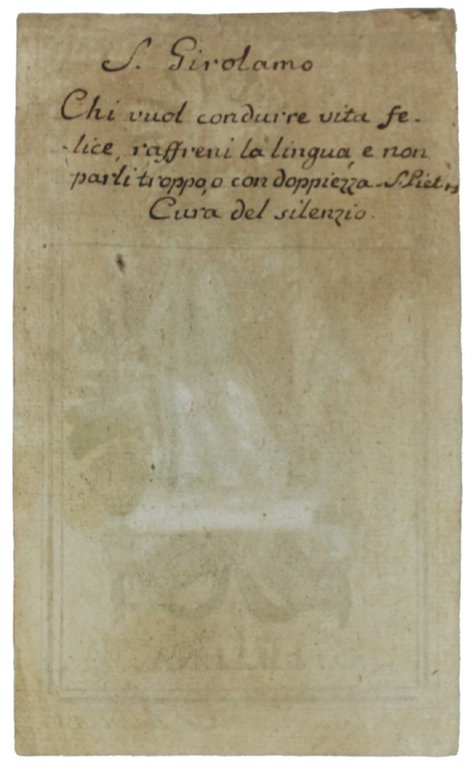 S. Girolamo
Chi vuol condurre vita fe-
lice, raffreni la lingua, e non
parli troppo, o con doppiezza. S. Piet.
Cura del silenzio.